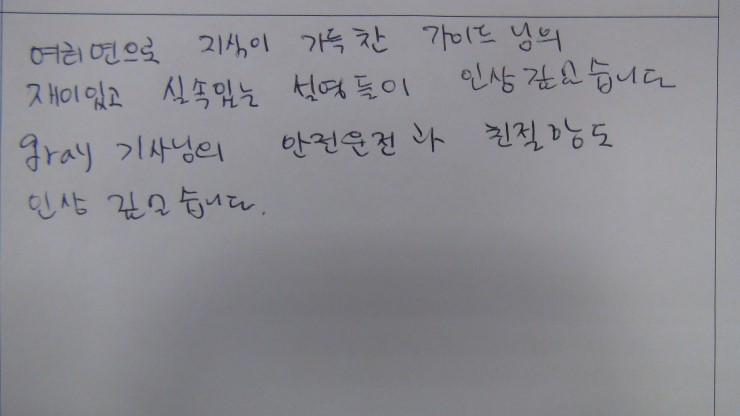 여러면으로 지식이 가득찬 가이드님의
재미있고 실속있는 설명들이 인상깊었습니다
gray 기사님의 안전운전과 친절함도
인상 깊었습니다.